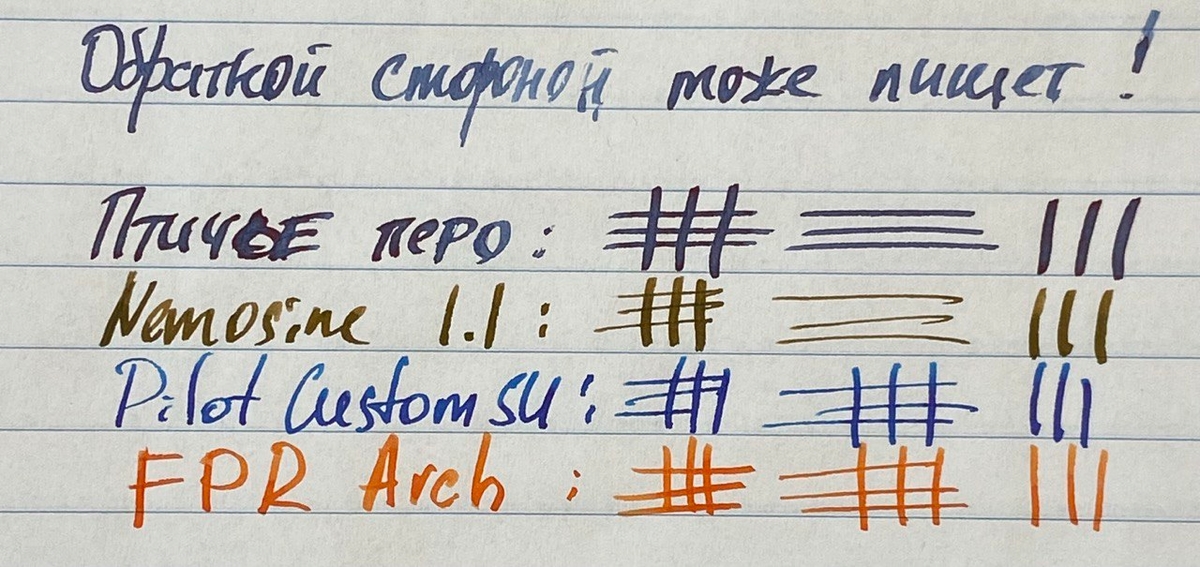 Обраткой стороной може пищет!
Птичье перо:
Nemosine 1.1:
Pilot Custom SU:
FPR Arch: